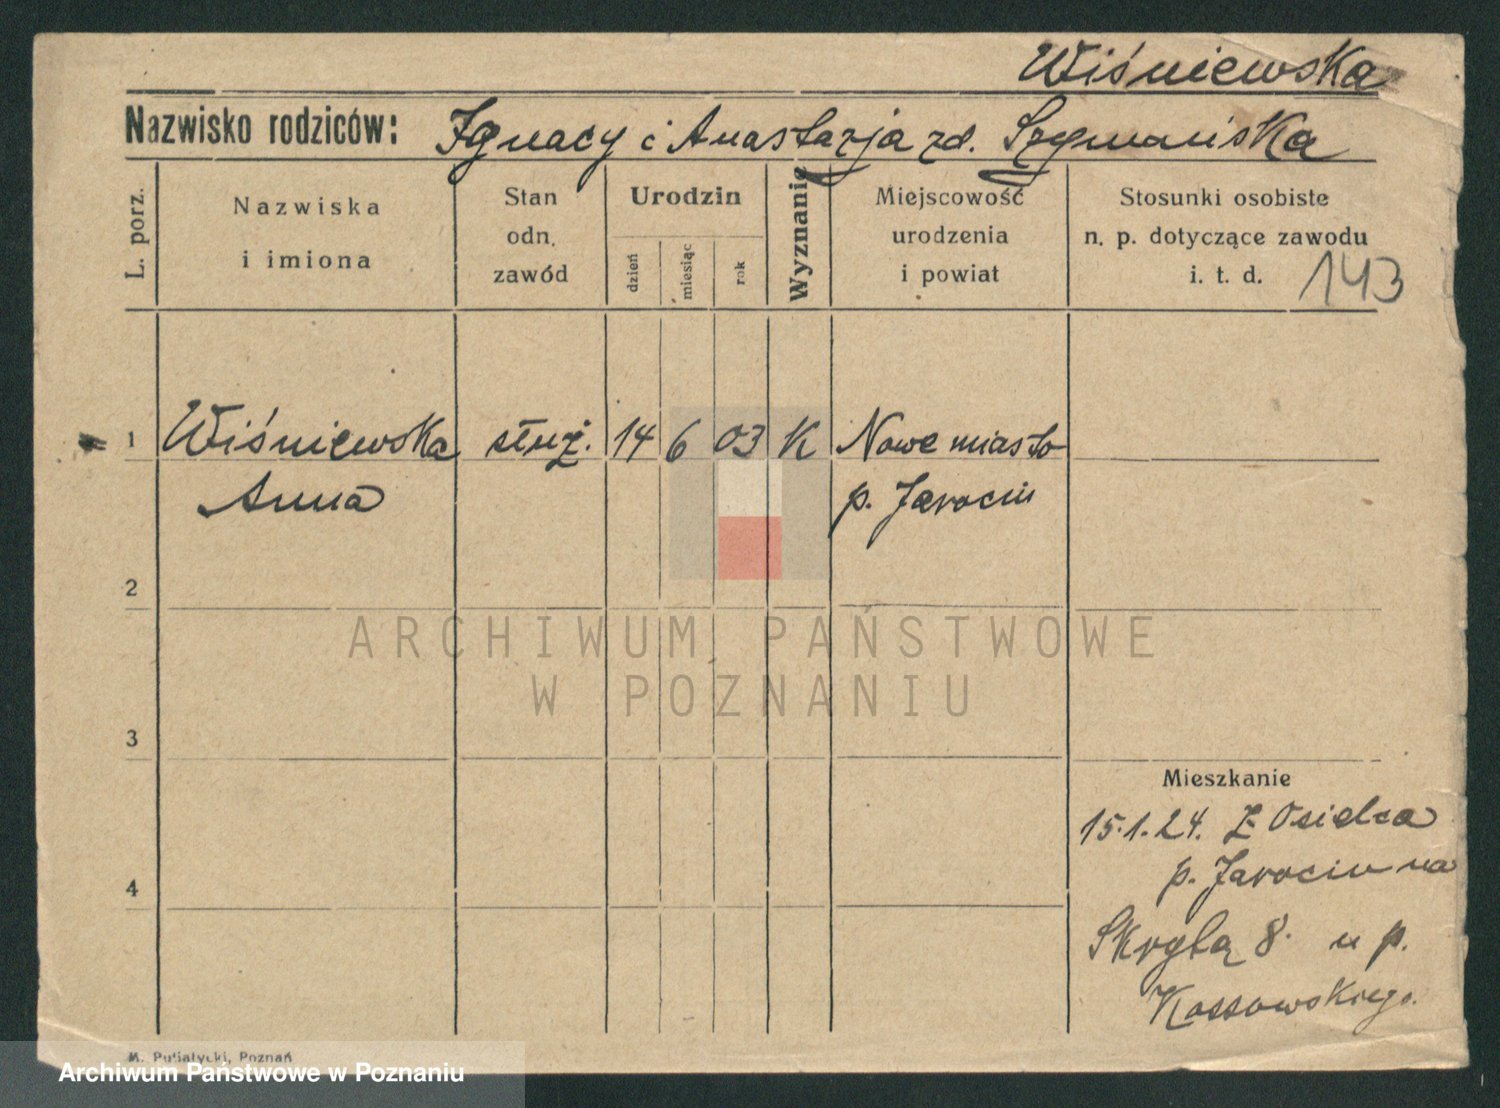 Wiśniewska
Nazwisko rodziców: Ignacy i Anastazja zd. Szymańska
L. porz.
Nazwiska
i imiona
Stan
odn.
zawód
Urodzin
dzień
miesiąc
rok
Wyznanie
Miejscowość
urodzenia
i powiat
Stosunki osobiste
n. p. dotyczące zawodu
i. t. d. 143
1 Wiśniewska służ. 14 6 03 K Nowe miasto
Anna p. Jarocin
2
ARCHIWUM PAŃSTWOWE
W POZNANIU
3
Mieszkanie
15.1.24. Z Osielca
p. Jarocin na
4
Skrytą 8. u p.
Kossowskiego.
M. Putiatycki, Poznań
Archiwum Państwowe w Poznaniu